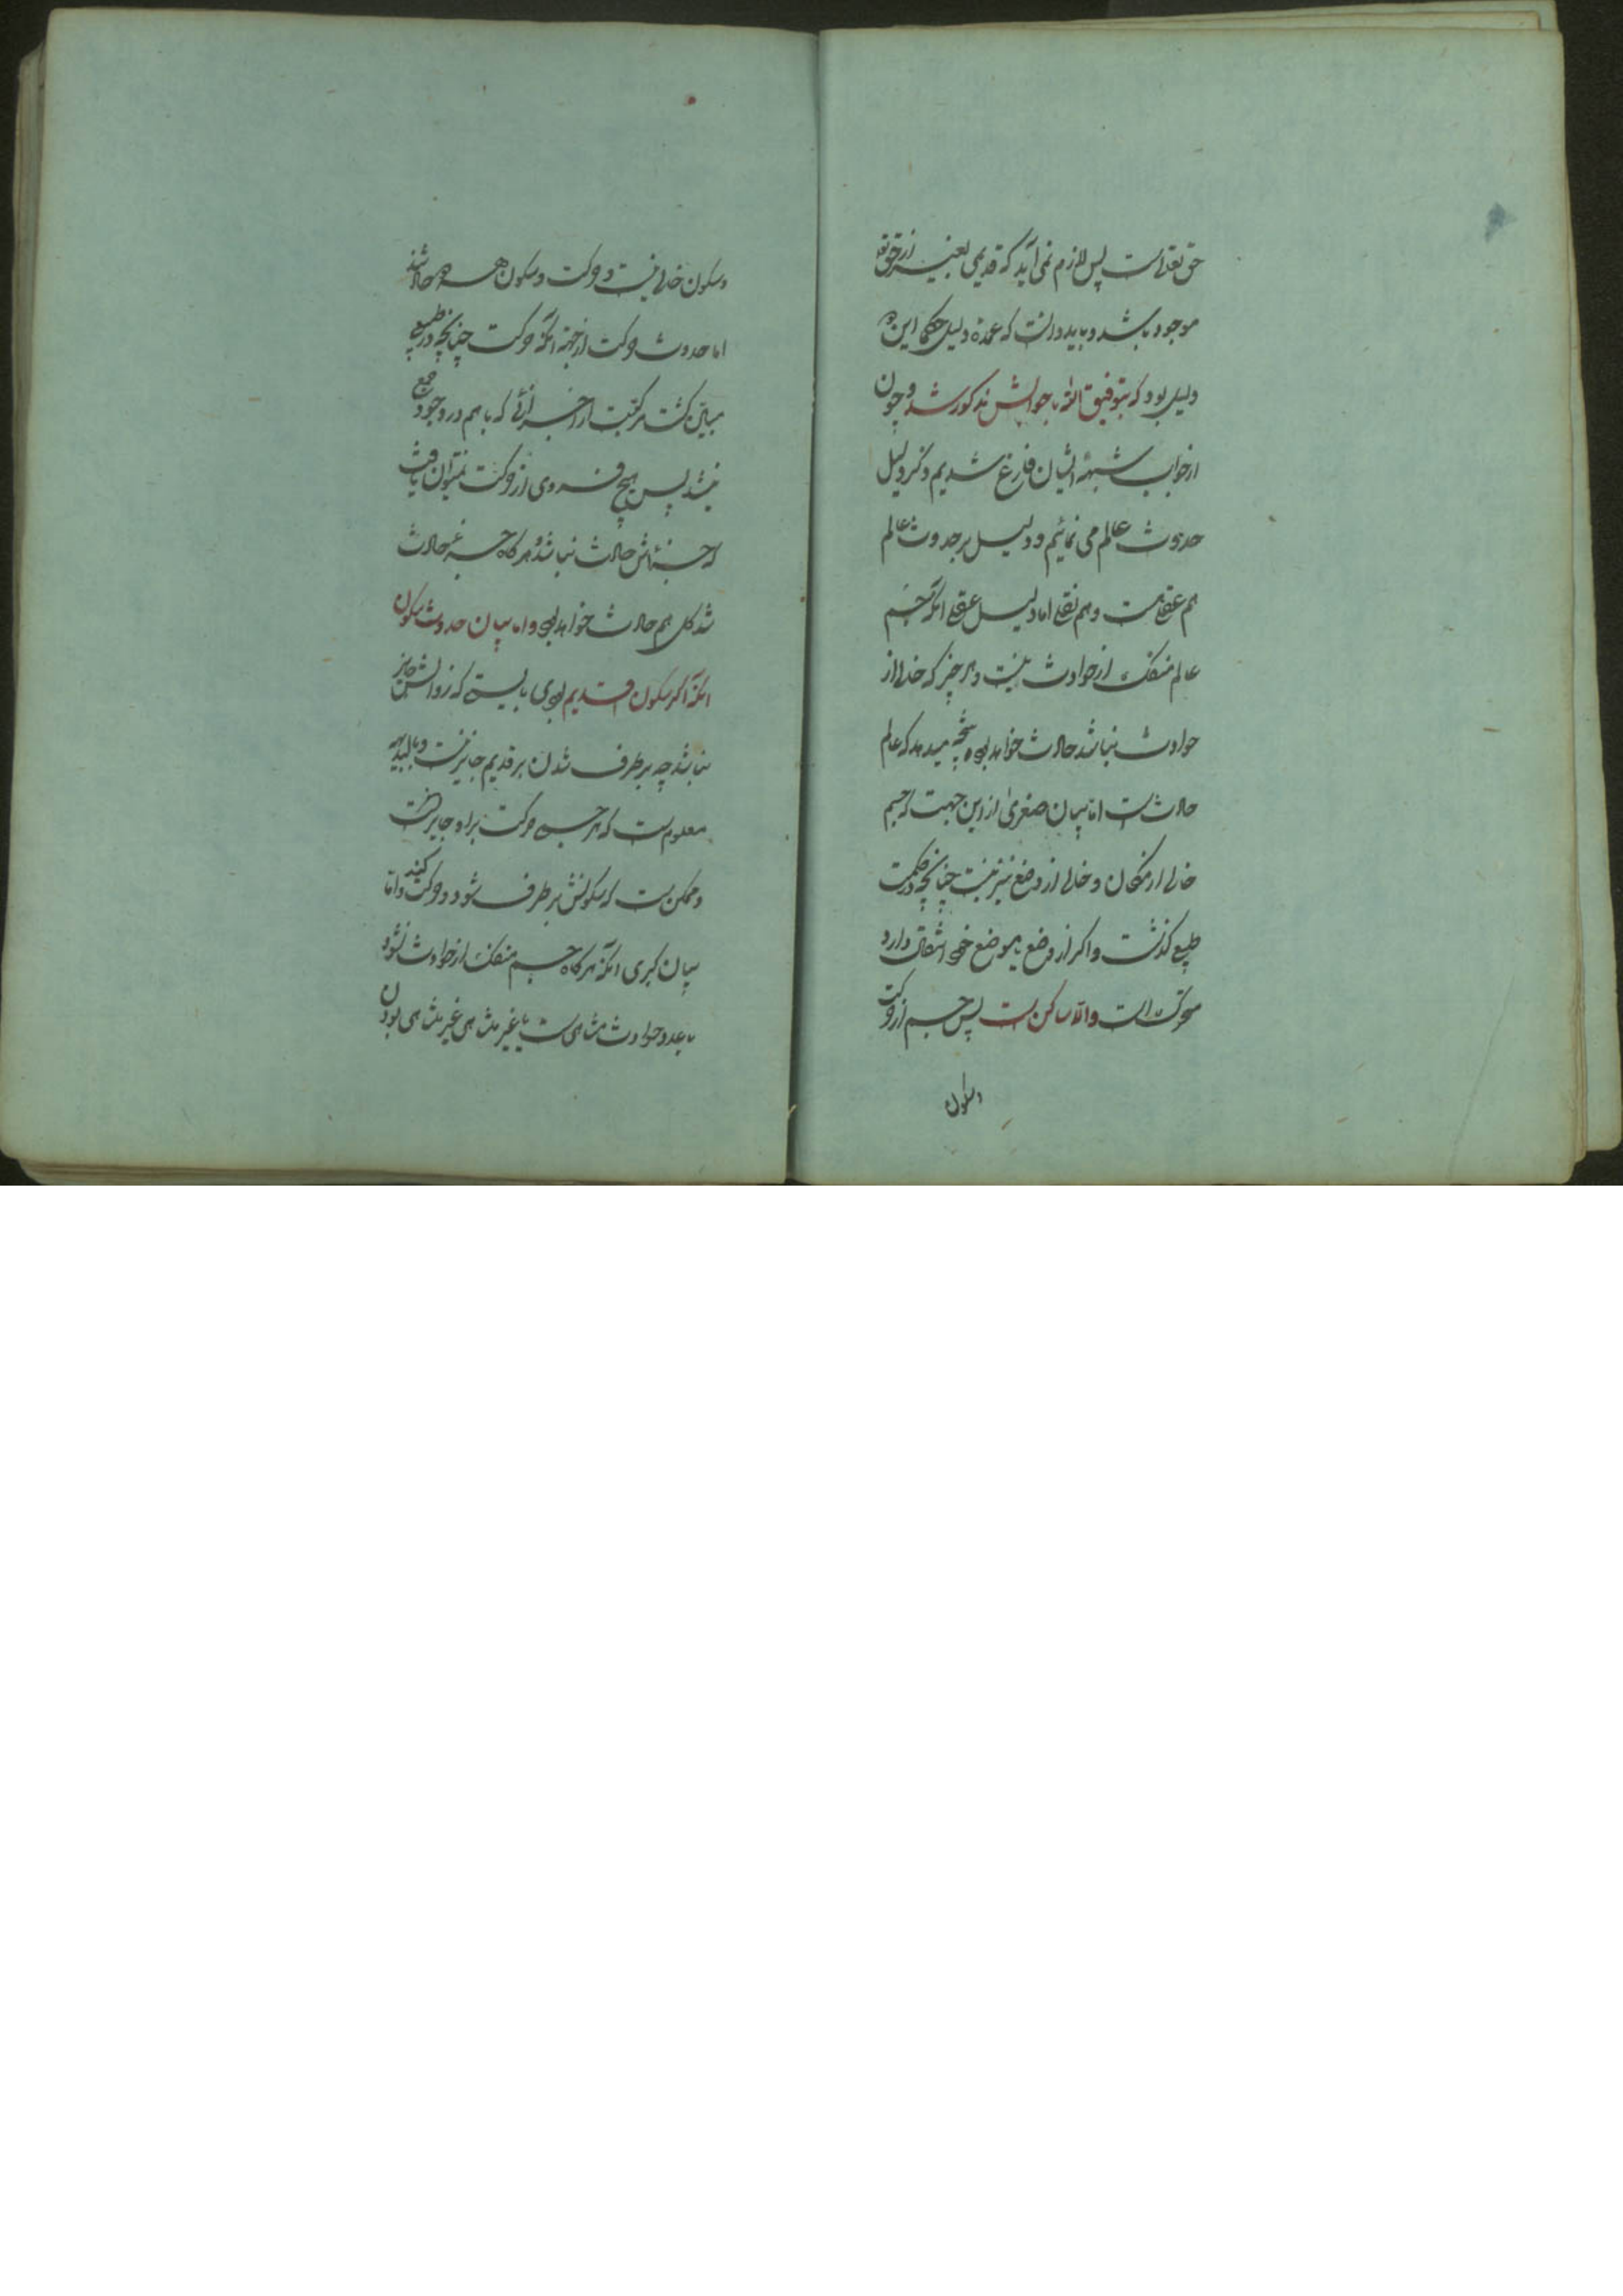 حق تعالی است پس لازم نمی آید که قدیمی بغیر از حق تعا
موجود باشد و باید دانست که عمده دلیل حکما این
دلیل بود که بتوفیق الله جوابش مذکور شد و چون
از جواب شبهه ایشان فارغ شدیم ذکر دلیل
حدوث عالم می نمائیم و دلیل بر حدوث عالم
هم عقلی هست و هم نقلی اما دلیل عقلی آنکه جسم
عالم منفک از حوادث نیست و هر چیز که خالی از
حوادث نباشد حادث خواهد بود نتیجه میدهد که عالم
حادث است اما بیان صغری از این جهت که جسم
خالی از مکان و خالی از وضع نیز نیست چنانچه در حکمت
طبیعی گذشت و اگر از وضع بموضع خود انتقال دارد
متحرک است و الا ساکن است پس جسم از حرکت
و سکون
و سکون خالی نیست و حرکت و سکون هر دو حادثند
اما حدوث حرکت از جهة آنکه حرکت چنانچه در طبیعی
مبین گشت مرکبست از اجزائی که با هم در وجود جمع
نیشد پس هیچ فردی از حرکت نمیتوان یافت
که جزئیاتش حادث نباشد و هرگاه جزء حادث
شد کل هم حادث خواهد بود و اما بیان حدوث سکون
آنکه اگر سکون قدیم بودی بایستی که زوالش جایز
نباشد چه برطرف شدن بر قدیم جایز نیست و بالبدیهه
معلوم است که هر جسمی حرکت بر او جایز است
و ممکن است که سکونش برطرف شود و حرکت کند و اما
بیان کبری آنکه هرگاه جسم منفک از حوادث نشود
یا عدد حوادث متناهی است یا غیر متناهی غیر متناهی بودن